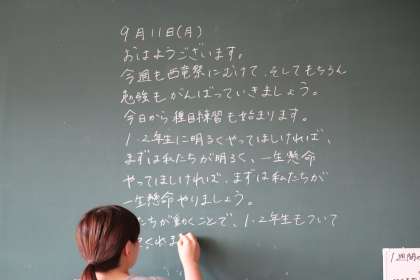 9月11日(月)
おはようございます。
今週も西竜祭にむけて、そしてもちろん
勉強もがんばっていきましょう。
今日から種目練習も始まります。
1・2年生に明るくやってほしければ、
まずは私たちが明るく、一生懸命
やってほしければ、まずは私たちが
一生懸命やりましょう。
たちが動くことで、1・2年生もついて
くれま
1週間の